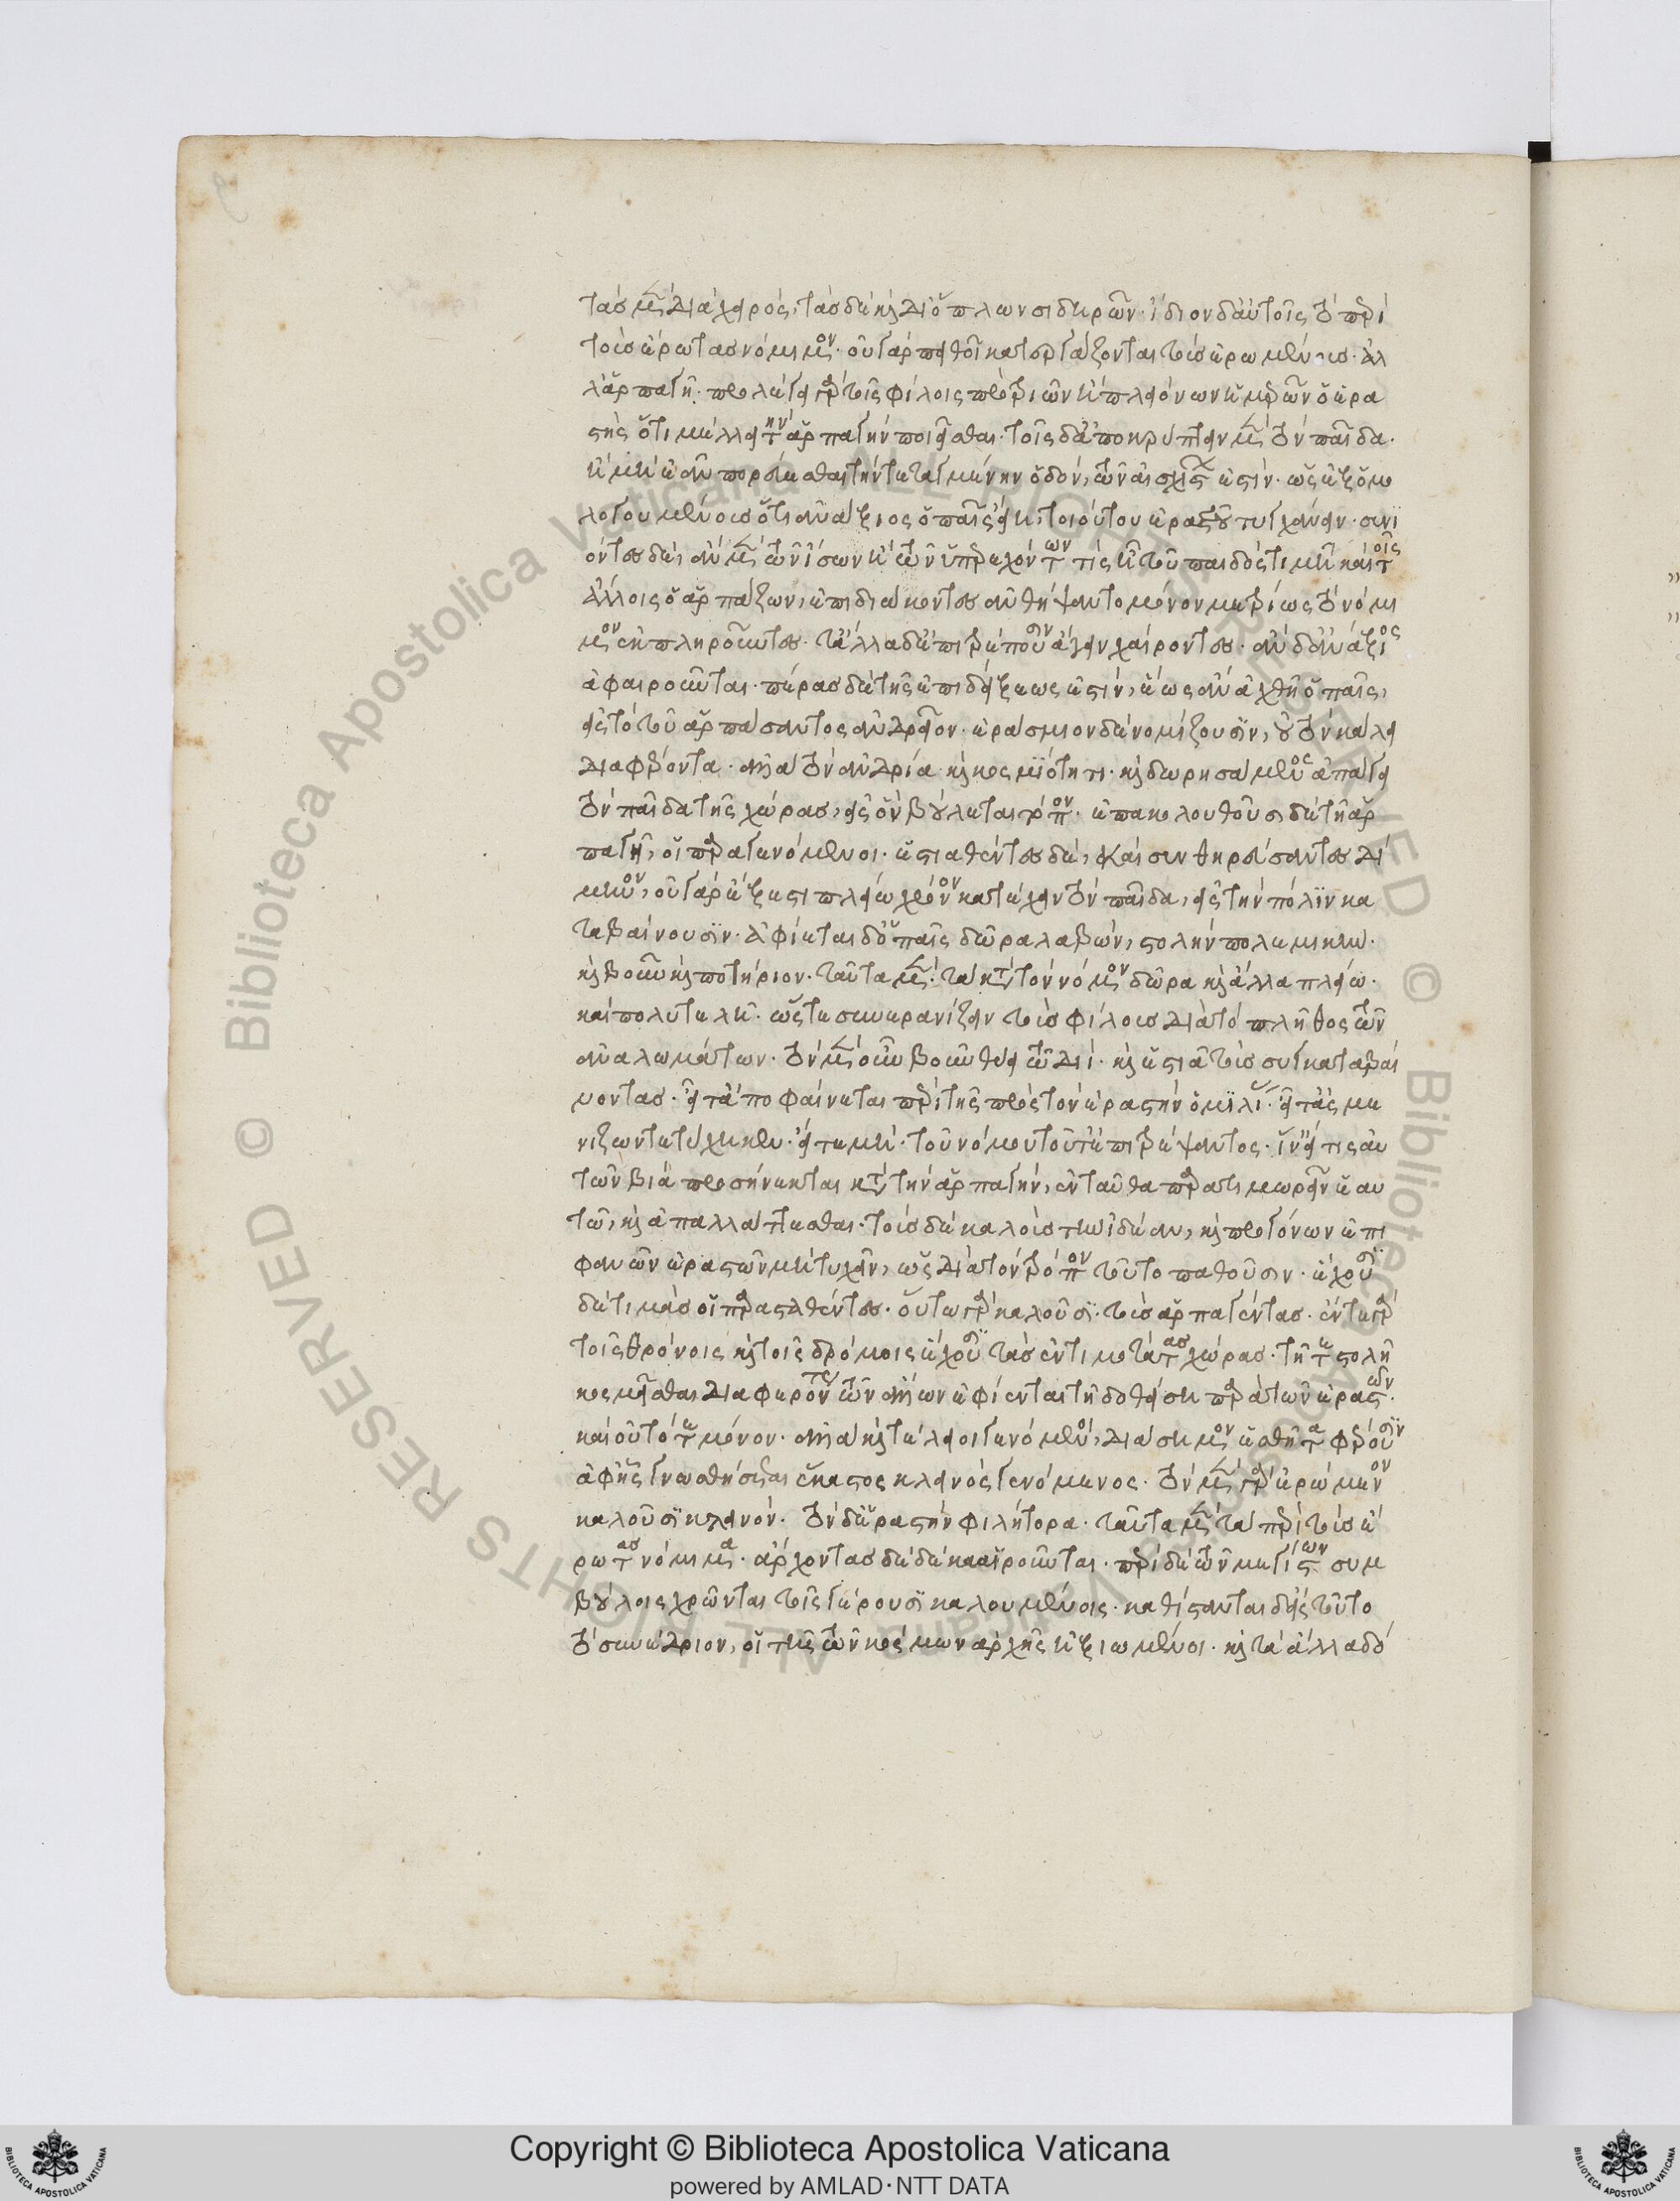 τὰς μὲν διὰ χειρὸς, τὰς δὲ κ̀ δι' ὅπλων σιδηρῶν. ἴδιον δ' αὐτοῖς τὸ περὶ
τοὺς ἔρωτας νόμιμον. οὐ γὰρ πειθοῖ κατεργάζονται τοὺς ἐρωμένους. ἀλ
λ' ἁρπαγῆ. προλέγει γὰρ τοῖς φίλοις πρὸ τριῶν ἢ πλειόνων ἡμερῶν ὁ ἐρα
στὴς ὅτι μέλλει τὴν ἁρπαγὴν ποιεῖσθαι. τοῖς δ' ἀποκρύπτειν μὲν τὸν παῖδα.
ἢ μὴ ἐᾶν πορεύεσθαι τὴν τεταγμένην ὁδὸν, τῶν αἰσχίστων ἐστίν. ὡς ἐξομο
λογουμένοις ὅτι ἀνάξιος ὁ παῖς εἴη, τοιούτου ἐραστοῦ τυγχάνειν. συνϊ
όντες δὲ, ἂν μὲν τῶν ἴσων ἢ τῶν ὑπερεχόντων τίς ἦ τοῦ παιδὸς τιμῆ καὶ τοῖς
ἄλλοις ὁ ἁρπάζων, ἐπιδιώκοντες ἀνθήψαντο μόνον μετρίως τὸ νόμι
μον ἐκπληροῦντες. τἄλλα δ' ἐπιτρέπουσιν ἄγειν χαίροντες. ἂν δ' ἀνάξιος
ἀφαιροῦνται. πέρας δὲ τῆς ἐπιδείξεως ἐστὶν, ἕως ἂν ἀχθῆ ὁ παῖς,
εἰς τὸ τοῦ ἁρπάσαντος ἀνδρεῖον. ἐράσμιον δὲ νομίζουσϊν, οὐ τὸν κάλλει
διαφέροντα. ἀλλὰ τὸν ἀνδρία κ̀ κοσμϊότητι. κ̀ δωρησάμενος ἀπάγει
τὸν παῖδα τῆς χώρας, εἰς ὃν βούλεται τόπον. ἐπακολουθοῦσι δὲ τῆ ἁρ
παγῆ, οἱ παραγενόμενοι. ἑστιαθέντες δὲ, καὶ συνθηρεύσαντες δί
μηνον, οὐ γὰρ ἔξεστι πλείω χρόνον κατέχειν τὸν παῖδα, εἰς τὴν πόλϊν κα
ταβαίνουσϊν. ἀφίεται δ' ὁ παῖς δῶρα λαβὼν, στολὴν πολεμικὴν.
κ̀ βοῦν κ̀ ποτήριον. ταῦτα μὲν. τὰ κατὰ τὸν νόμον δῶρα κ̀ ἄλλα πλείω.
καὶ πολυτελῆ. ὥστε συνερανίζειν τοὺς φίλους διὰ τὸ πλῆθος τῶν
ἀναλωμάτων. τὸν μὲν οὖν βοῦν θύει τῶ Διί. κ̀ ἑστιᾶ τοὺς συγκαταβαί
νοντας. εἶτ' ἀποφαίνεται περὶ τῆς πρὸς τὸν ἐραστὴν ὁμϊλίας. εἴτ' ἀσμε
νίζων τετύχηκεν. εἴτε μὴ. τοῦ νόμου τοῦτ' ἐπιτρέψαντος. ἵν' εἴ τις αὐ
τῶν βία προσήνεκται κατὰ τὴν ἁρπαγὴν, ἐνταῦθα παρα τιμωρεῖν ἑαυ
τῶ, κ̀ ἀπαλλάττεσθαι. τοῖς δὲ καλοῖς τὴν ἰδέαν, κ̀ προγόνων ἐπι
φανῶν ἐραστῶν μὴ τυχεῖν, ὡς διὰ τὸν τρόπον τοῦτο παθοῦσιν. ἔχουσϊ
δὲ τιμὰς οἱ παρασταθέντες. οὕτω γὰρ καλοῦσϊ. τοὺς ἁρπαγέντας. ἔν τε γὰρ
τοῖς θρόνοις κ̀ τοῖς δρόμοις ἔχουσϊ τὰς ἐντιμοτάτας χώρας. τῆ τε στολῆ
κοσμεῖσθαι διαφερόντως τῶν ἄλλων ἐφίενται τῆ δοθείση παρὰ τῶν ἐραστῶν.
καὶ οὐ τότε μόνον. ἀλλὰ κ̀ τέλειοι γενόμενοι, διάσημον ἐσθῆτα φέρουσϊν
ἀφ' ἧς γνωσθήσεται ἕκαστος κλεινὸς γενόμενος. τὸν μὲν γὰρ ἐρώμενον
καλοῦσϊ κλεινόν. τὸν δ' ἐραστὴν φιλήτορα. ταῦτα μὲν τὰ περὶ τοὺς ἔ
ρωτας νόμιμα. ἄρχοντας δὲ δέκα αἱροῦνται. περὶ δὲ τῶν μεγίστων συμ
βούλοις χρῶνται τοῖς γέρουσϊ καλουμένοις. καθίστανται δ' εἰς τοῦτο
τὸ συνέδριον, οἱ τῆς τῶν κόσμων ἀρχῆς ἠξιωμένοι. κ̀ τὰ ἄλλα δό
Copyright © Biblioteca Apostolica Vaticana
powered by AMLAD·NTT DATA